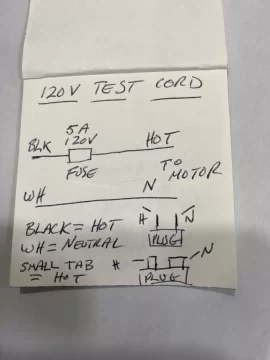 120V TEST CORD
5A
BLK 120V HOT
FUSE
TO
MOTOR
WH N
BLACK = HOT
H N
WH = NEUTRAL
PLUG
SMALL TAB H N
= HOT
PLUG